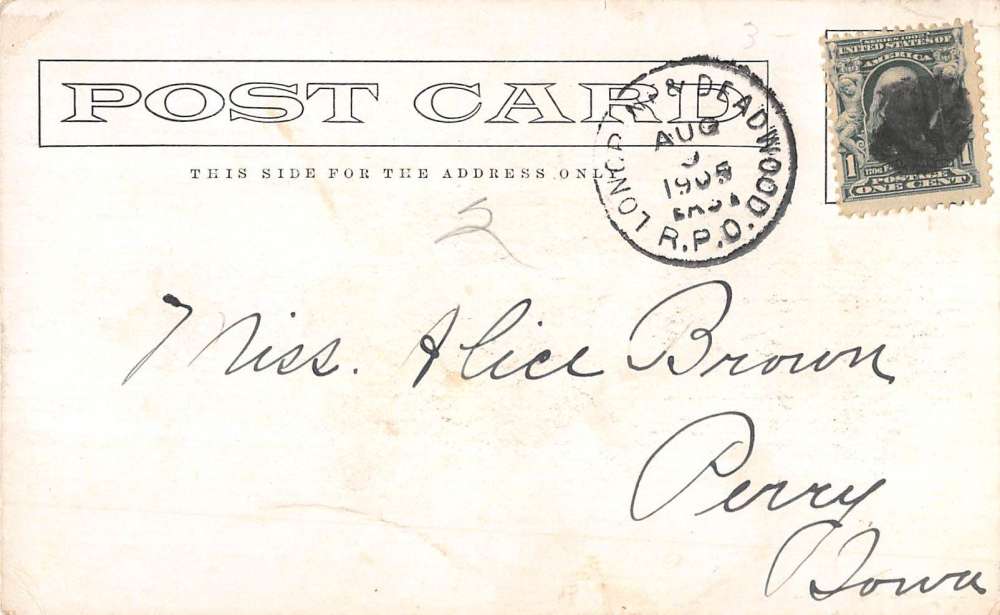 3
POST CARD
THIS SIDE FOR THE ADDRESS ONLY
& DEADWOOD
AUG
1905
EAST
R.P.O.
SERIES 1902
UNITED STATES OF
AMERICA
1
POSTAGE
ONE CENT
Miss. Alice Brown
Perry
Iowa